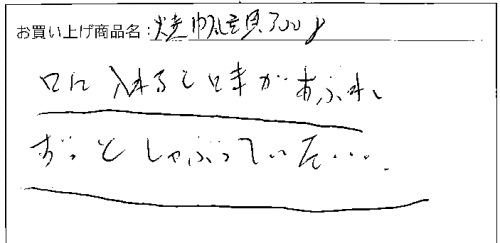 お買い上げ商品名:焼帆立貝300g
口に入れると味があふれ
ずっとしゃぶっていた・・・.